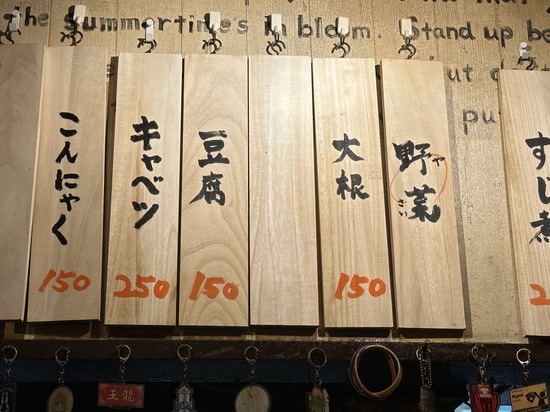 the summertime's in bloom. Stand up be
こんにゃく
150
キャベツ
250
豆腐
150
大根
150
野菜
や
さい
すじ煮
2
王龍